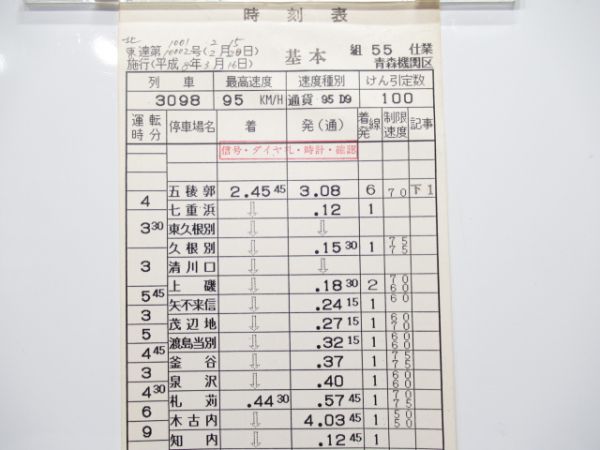 時刻表
北 1001 2 15
東達第10002号(2月28日)
施行(平成8年3月16日)
基本
組 55 仕業
青森機関区
列車 最高速度 速度種別 けん引定数
3098 95 KM/H 通貨 95 D9 100
運転時分 停車場名 着 発(通) 着発線 制限速度 記事
信号・ダイヤ・時計・確認
五稜郭 2.45 45 3.08 6 70 下1
4
七重浜 ⇩ .12 1
3 30
東久根別 ⇩ ⇩
久根別 ⇩ .15 30 1 75 75
3
清川口 ⇩ ⇩
上磯 ⇩ .18 30 2 70 60
5 45
矢不来信 ⇩ .24 15 1 60
3
茂辺地 ⇩ .27 15 1 60 70
5
渡島当別 ⇩ .32 15 1 60 60
4 45
釜谷 ⇩ .37 1 75 75
3
泉沢 ⇩ .40 1 60 60
4 30
札苅 .44 30 .57 45 1 70 75
6
木古内 ⇩ 4.03 45 1 50 50
9
知内 ⇩ .12 45 1